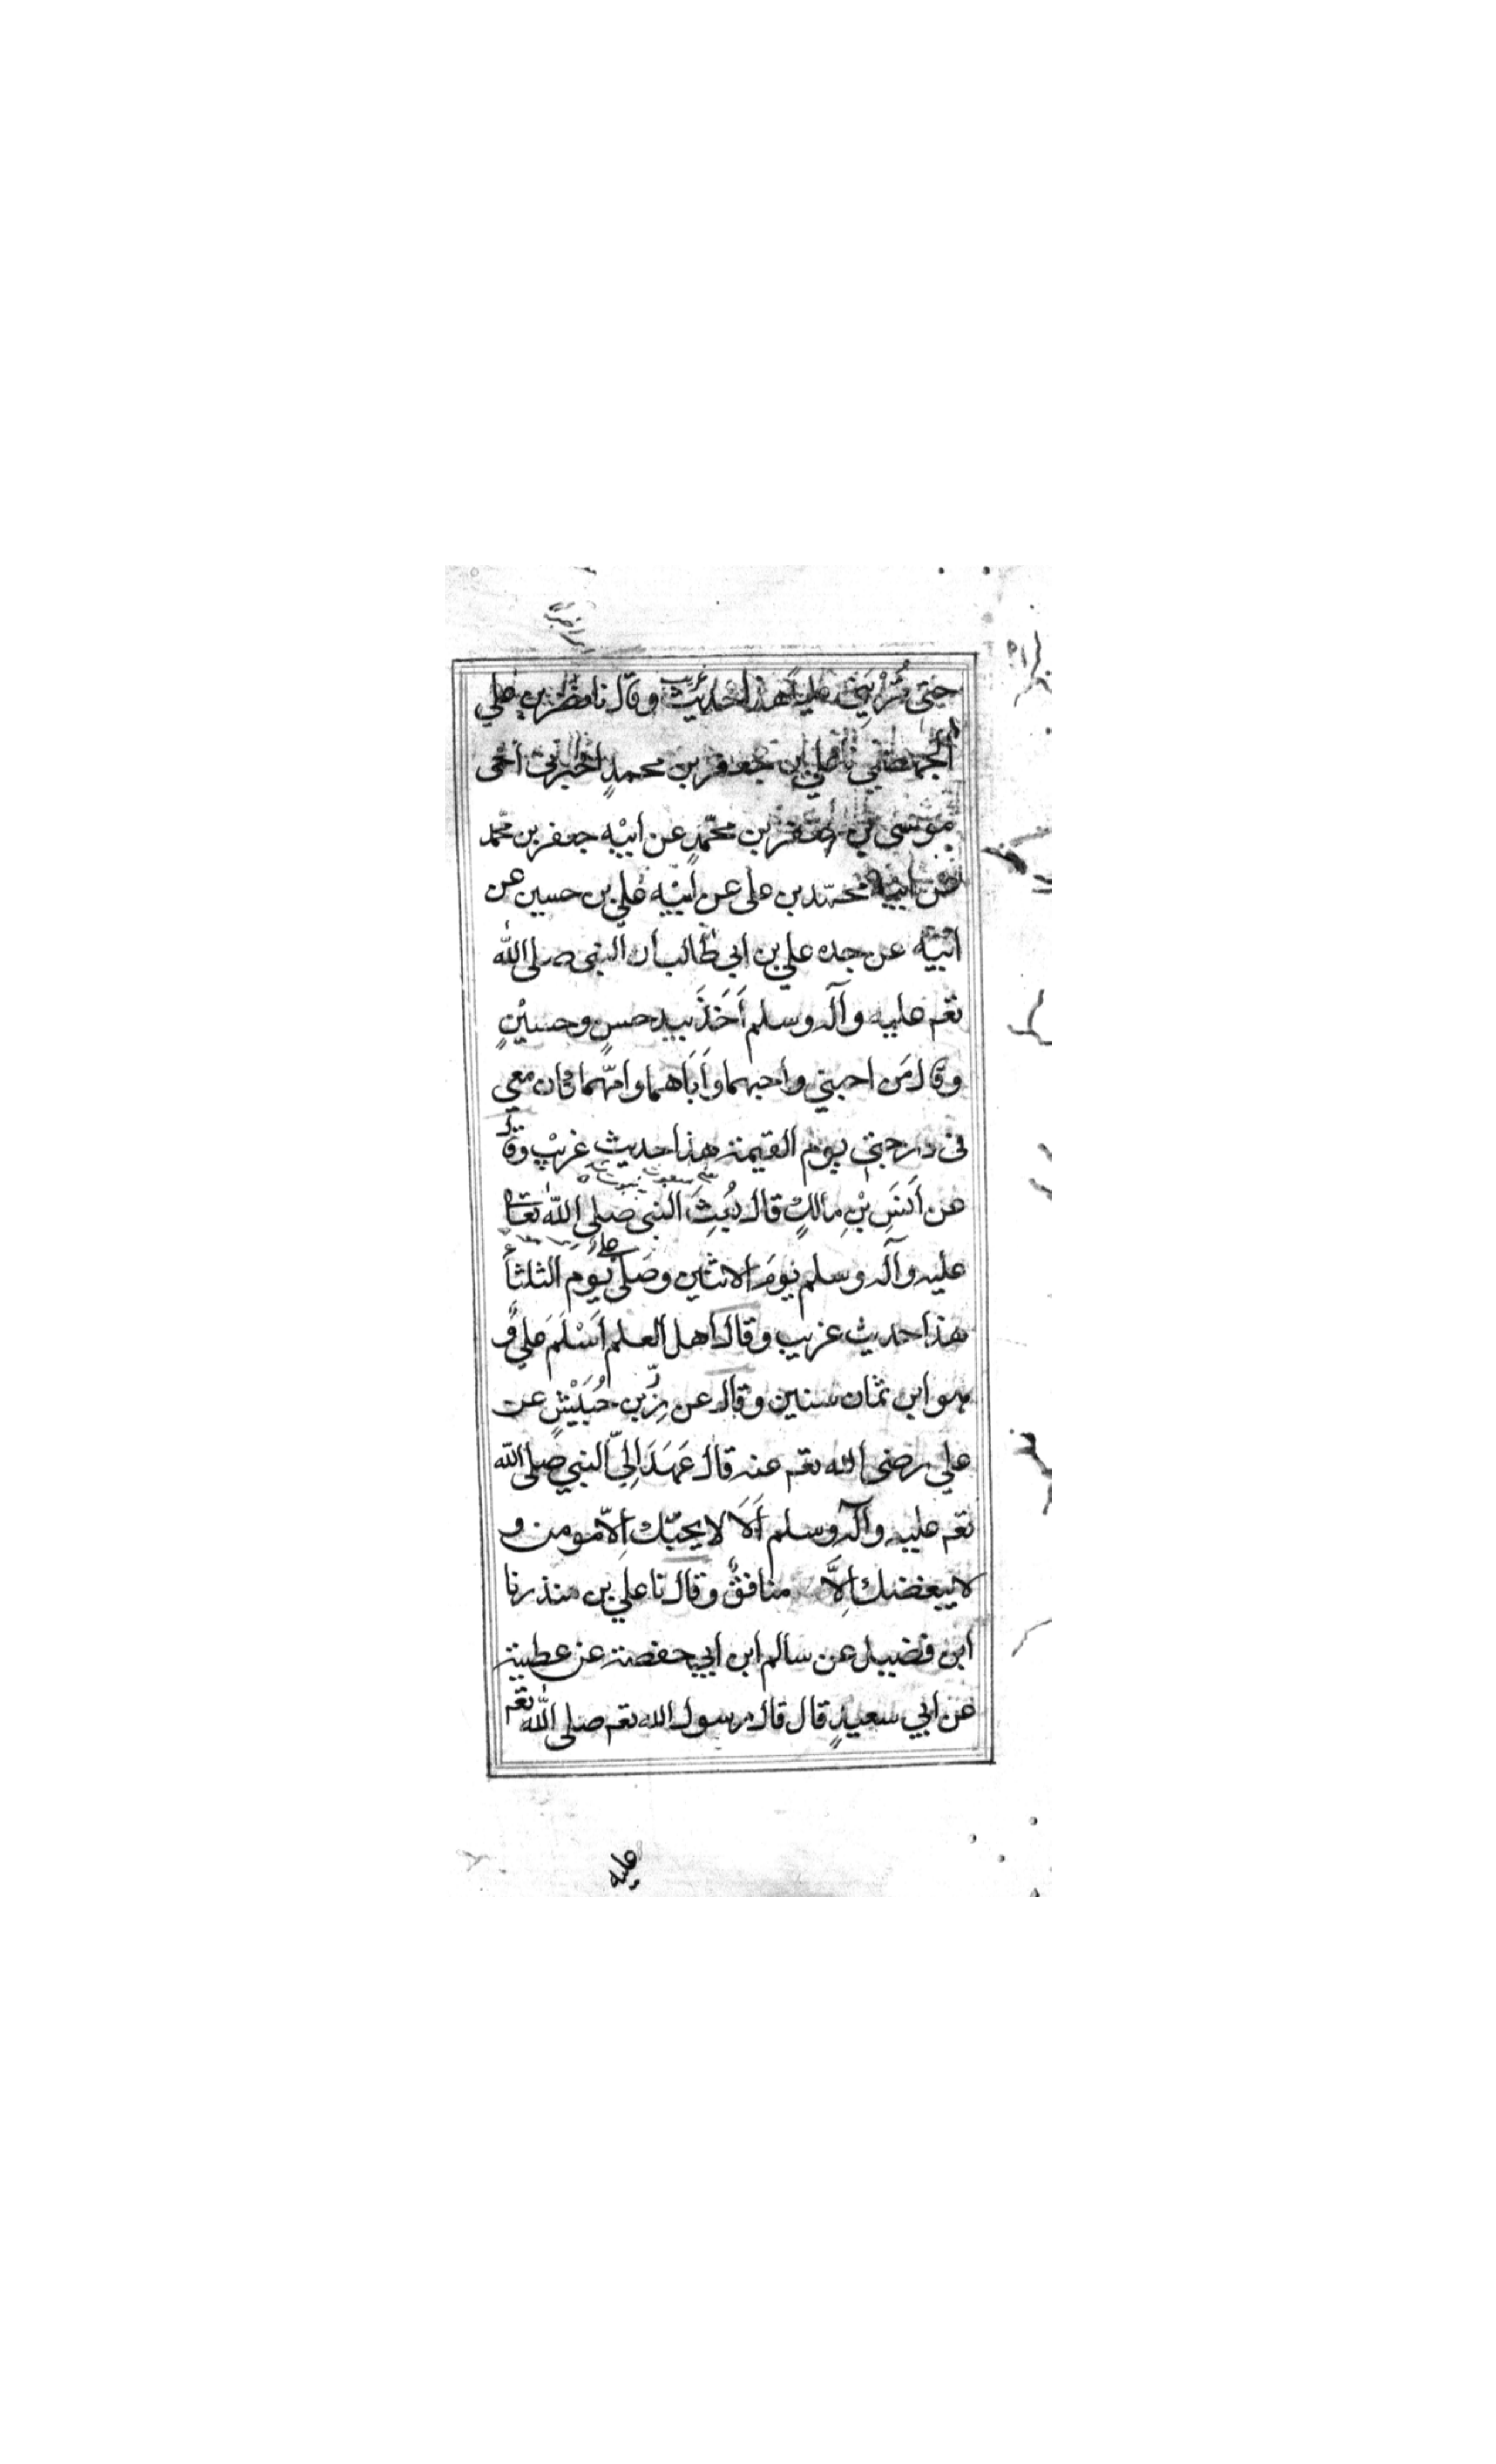 حتى تُرْيَنِي عليًّا هذا حديث غريب وقال نا نصر بن علي
الجهضمي نا علي بن جعفر بن محمدٍ اخبرنى اخى
موسى بن جعفر بن محمّدٍ عن ابيْه جعفر بن محمد
عن ابيه محمّد بن على عن ابيْه علي بن حسين عن
ابيْه عن جده علي بن ابى طالب ان النبى صلى الله
تعم عليه وآله وسلم اَخَذَ بيد حسنٍ وحسيْنٍ
وقال مَن احبني واحبهما واَبَاهما وامّهما كان معي
فى درجتى يوم القيمة هذا حديث غريْب وقال
عن اَنَسِ بْنِ مالكٍ قال بُعِثَ النبى صلى الله تعا
عليه وآله وسلم يومَ الاثنين وصَلّى علىٌ يوم الثلثاء
هذا حديث غريب وقال اهل العلم اَسْلَمَ عليٌ و
هو ابن ثمان سنين وقال عن زِرّ بن حُبَيْشٍ عن
علي رضى الله تعم عنه قال عَهَدَ اِليّ النبي صلى الله
تعم عليه وآله وسلم اَلَا لا يحبّك اِلاّ مومن و
لا يبغضك اِلاَّ منافقٌ وقال نا علي بن منذر نا
ابن فضيل عن سالم ابن ابي حفصة عن عطية
عن ابي سعيدٍ قال قال رسول الله تعم صلى الله تعم
عليه